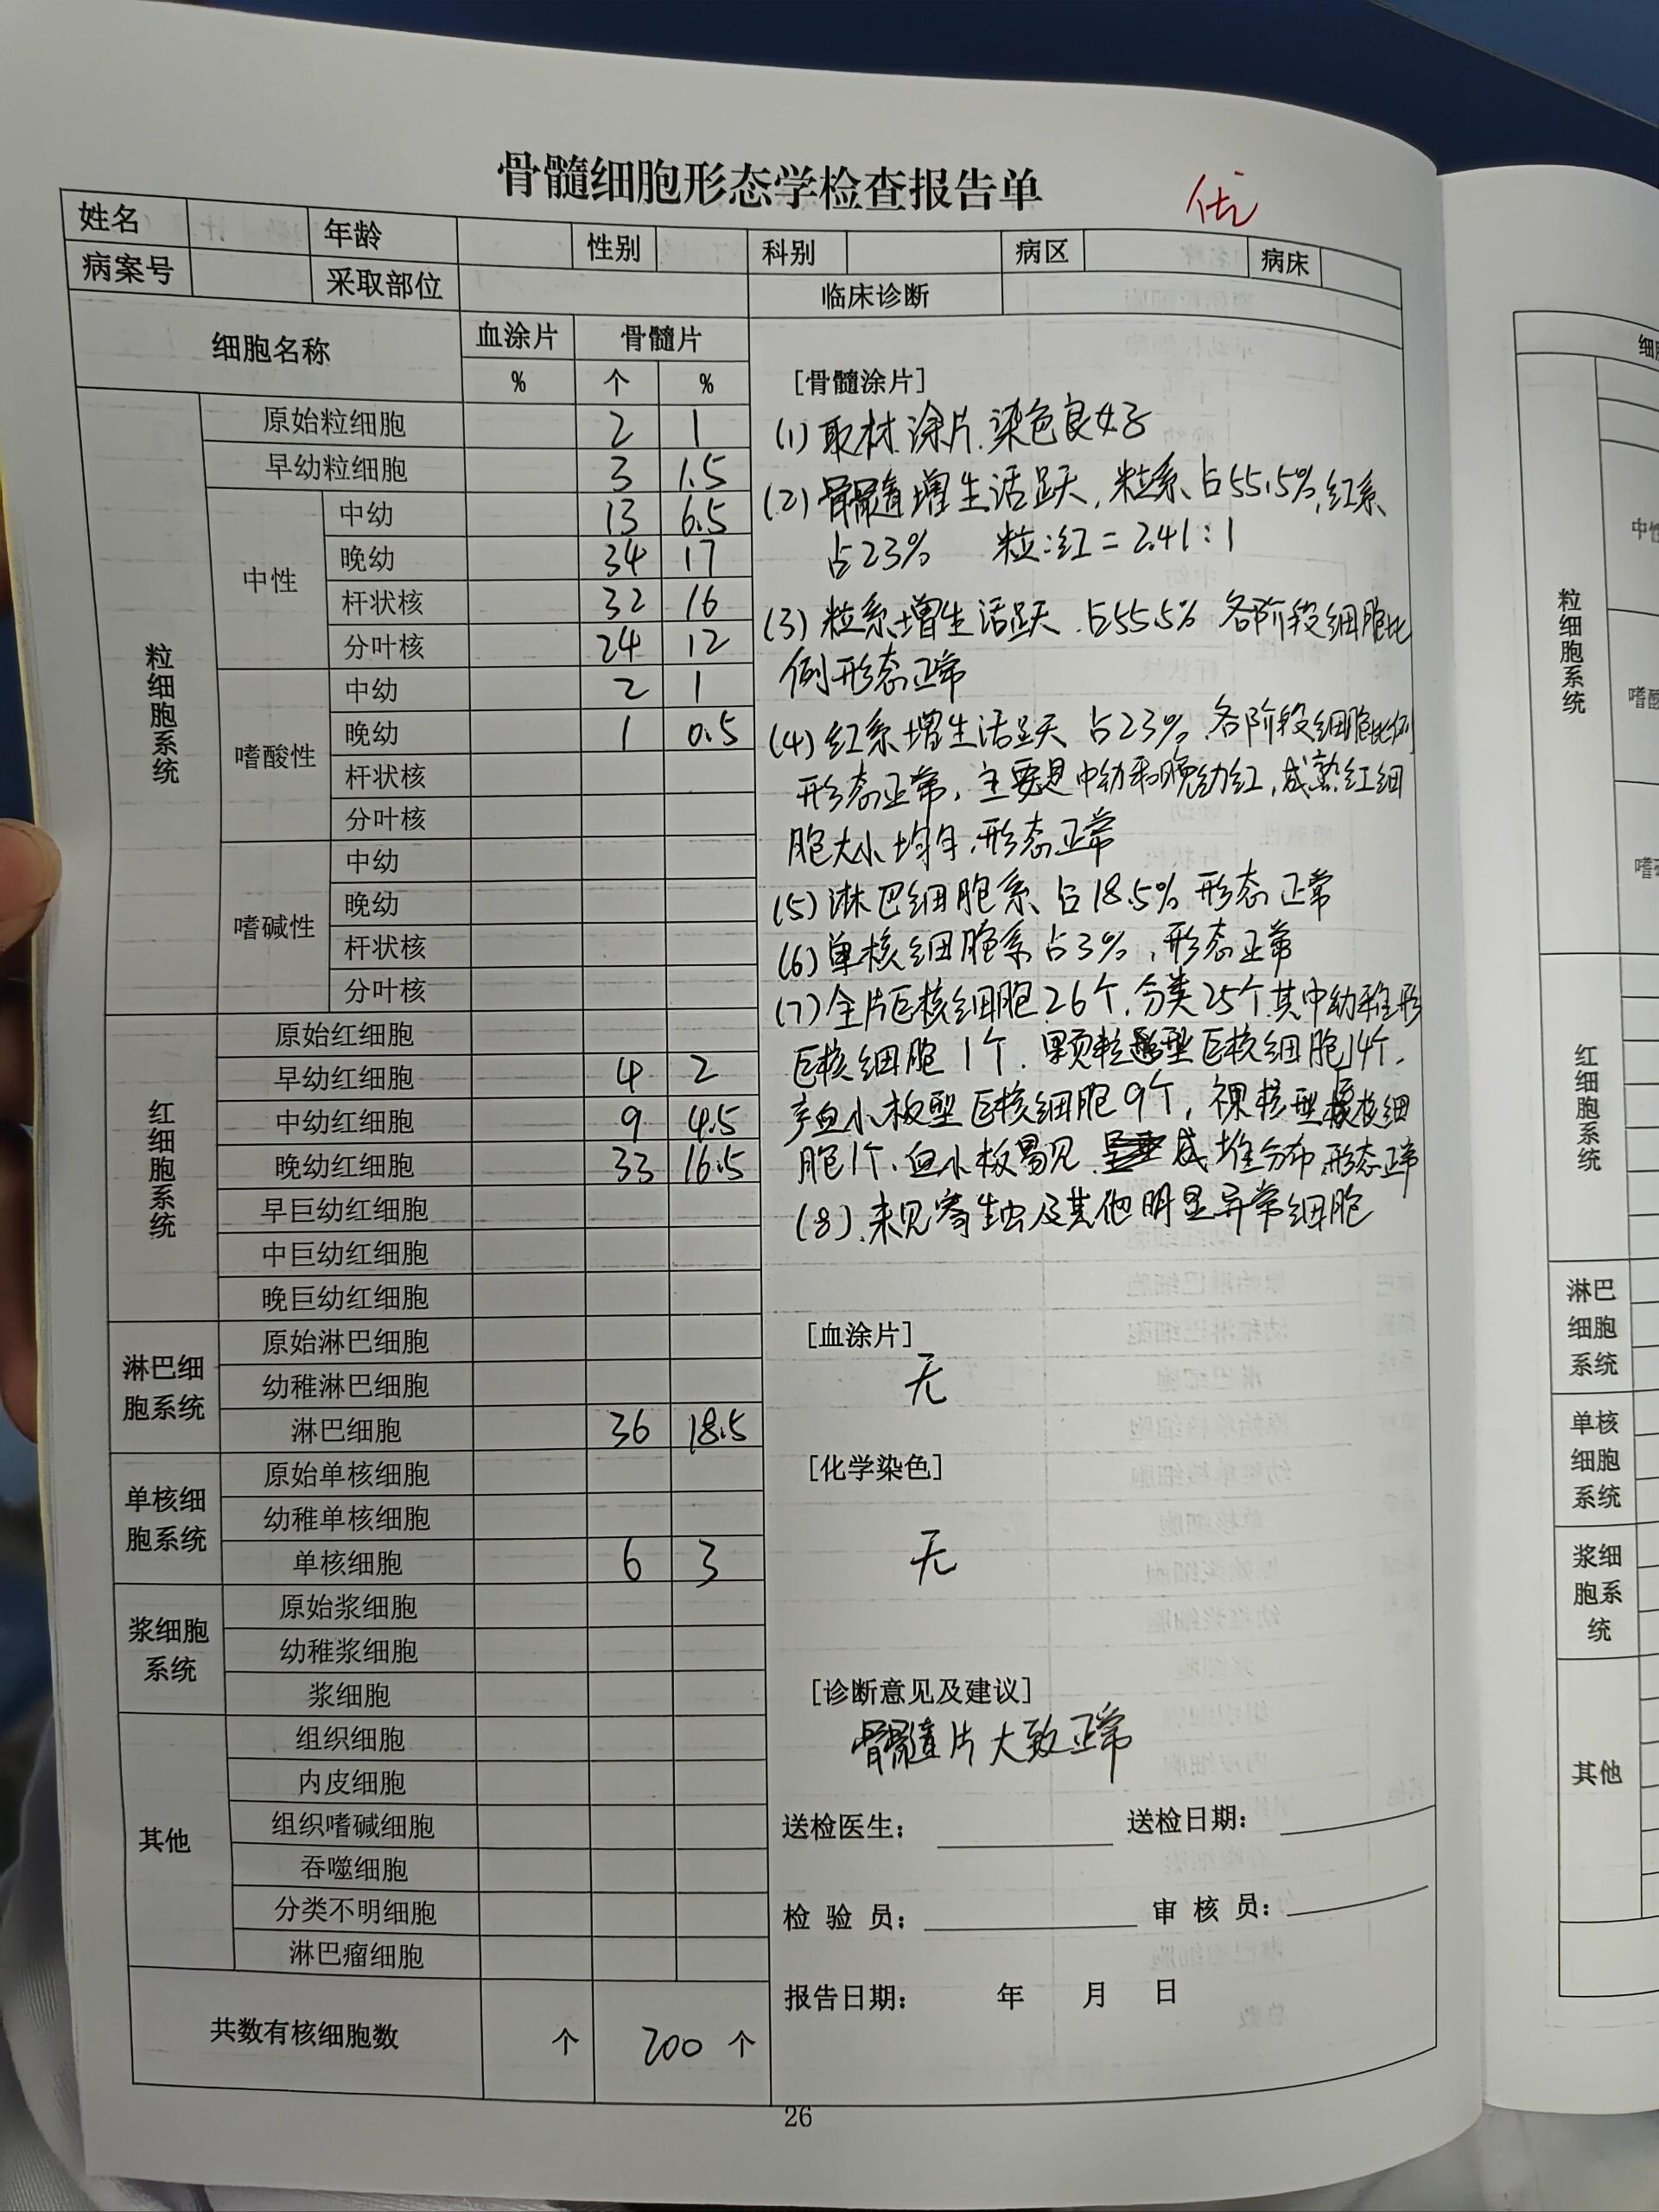 骨髓细胞形态学检查报告单
优
姓名 年龄 性别 科别 病区 病床
病案号 采取部位 临床诊断
细胞名称 血涂片 骨髓片
% 个 %
粒细胞系统
原始粒细胞 2 1
早幼粒细胞 3 1.5
中性
中幼 13 6.5
晚幼 34 17
杆状核 32 16
分叶核 24 12
嗜酸性
中幼 2 1
晚幼 1 0.5
杆状核
分叶核
嗜碱性
中幼
晚幼
杆状核
分叶核
红细胞系统
原始红细胞
早幼红细胞 4 2
中幼红细胞 9 4.5
晚幼红细胞 33 16.5
早巨幼红细胞
中巨幼红细胞
晚巨幼红细胞
淋巴细胞系统
原始淋巴细胞
幼稚淋巴细胞
淋巴细胞 36 18.5
单核细胞系统
原始单核细胞
幼稚单核细胞
单核细胞 6 3
浆细胞系统
原始浆细胞
幼稚浆细胞
浆细胞
其他
组织细胞
内皮细胞
组织嗜碱细胞
吞噬细胞
分类不明细胞
淋巴瘤细胞
共数有核细胞数 个 200 个
[骨髓涂片]
(1) 取材.涂片.染色良好
(2) 骨髓增生活跃,粒系占55.5%,红系
占23% 粒:红=2.41:1
(3) 粒系增生活跃.占55.5% 各阶段细胞比
例形态正常
(4) 红系增生活跃 占23%.各阶段细胞比例
形态正常,主要是中幼和晚幼红,成熟红细
胞大小均匀,形态正常
(5) 淋巴细胞系占18.5% 形态正常
(6) 单核细胞系占3%,形态正常
(7) 全片巨核细胞26个,分类25个.其中幼稚形
巨核细胞1个.颗粒型巨核细胞14个.
产血小板型巨核细胞9个,裸核型核细
胞1个.血小板易见.成堆分布,形态正常
(8).未见寄生虫及其他明显异常细胞
[血涂片]
无
[化学染色]
无
[诊断意见及建议]
骨髓片大致正常
送检医生: 送检日期:
检验员: 审核员:
报告日期: 年 月 日
26
粒细胞系统
红细胞系统
淋巴细胞系统
单核细胞系统
浆细胞系统
其他